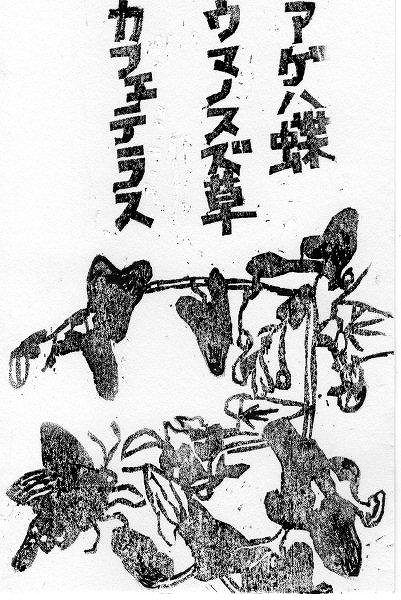 アゲハ蝶
ウマノスズ草
カフェテラス